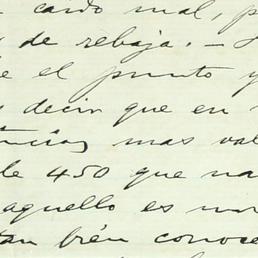 cardo mal, p
de rebaja. -
e el punto y
decir que en
mas val
de 450 que na
aquello es un
tan bién conoce